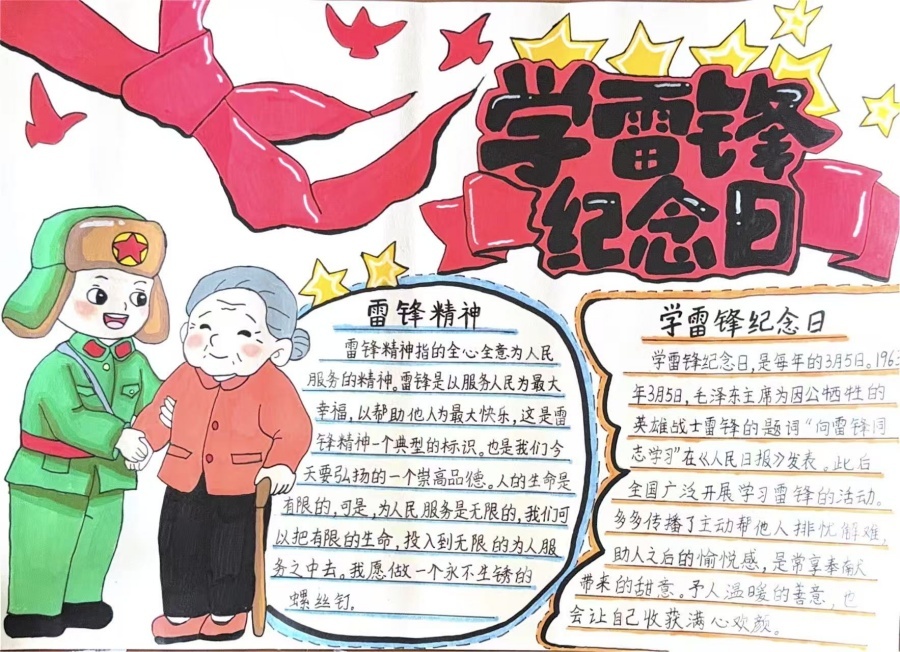 学雷锋
纪念日
雷锋精神
雷锋精神指的全心全意为人民
服务的精神。雷锋是以服务人民为最大
幸福，以帮助他人为最大快乐，这是雷
锋精神一个典型的标识。也是我们今
天要弘扬的一个崇高品德。人的生命是
有限的，可是，为人民服务是无限的，我们可
以把有限的生命，投入到无限的为人服
务之中去。我愿做一个永不生锈的
螺丝钉。
学雷锋纪念日
学雷锋纪念日，是每年的3月5日。1963
年3月5日，毛泽东主席为因公牺牲的
英雄战士雷锋的题词“向雷锋同
志学习”在《人民日报》发表。此后
全国广泛开展学习雷锋的活动。
多多传播了主动帮他人排忧解难，
助人之后的愉悦感，是常享奉献
带来的甜意。予人温暖的善意，也
会让自己收获满心欢颜。